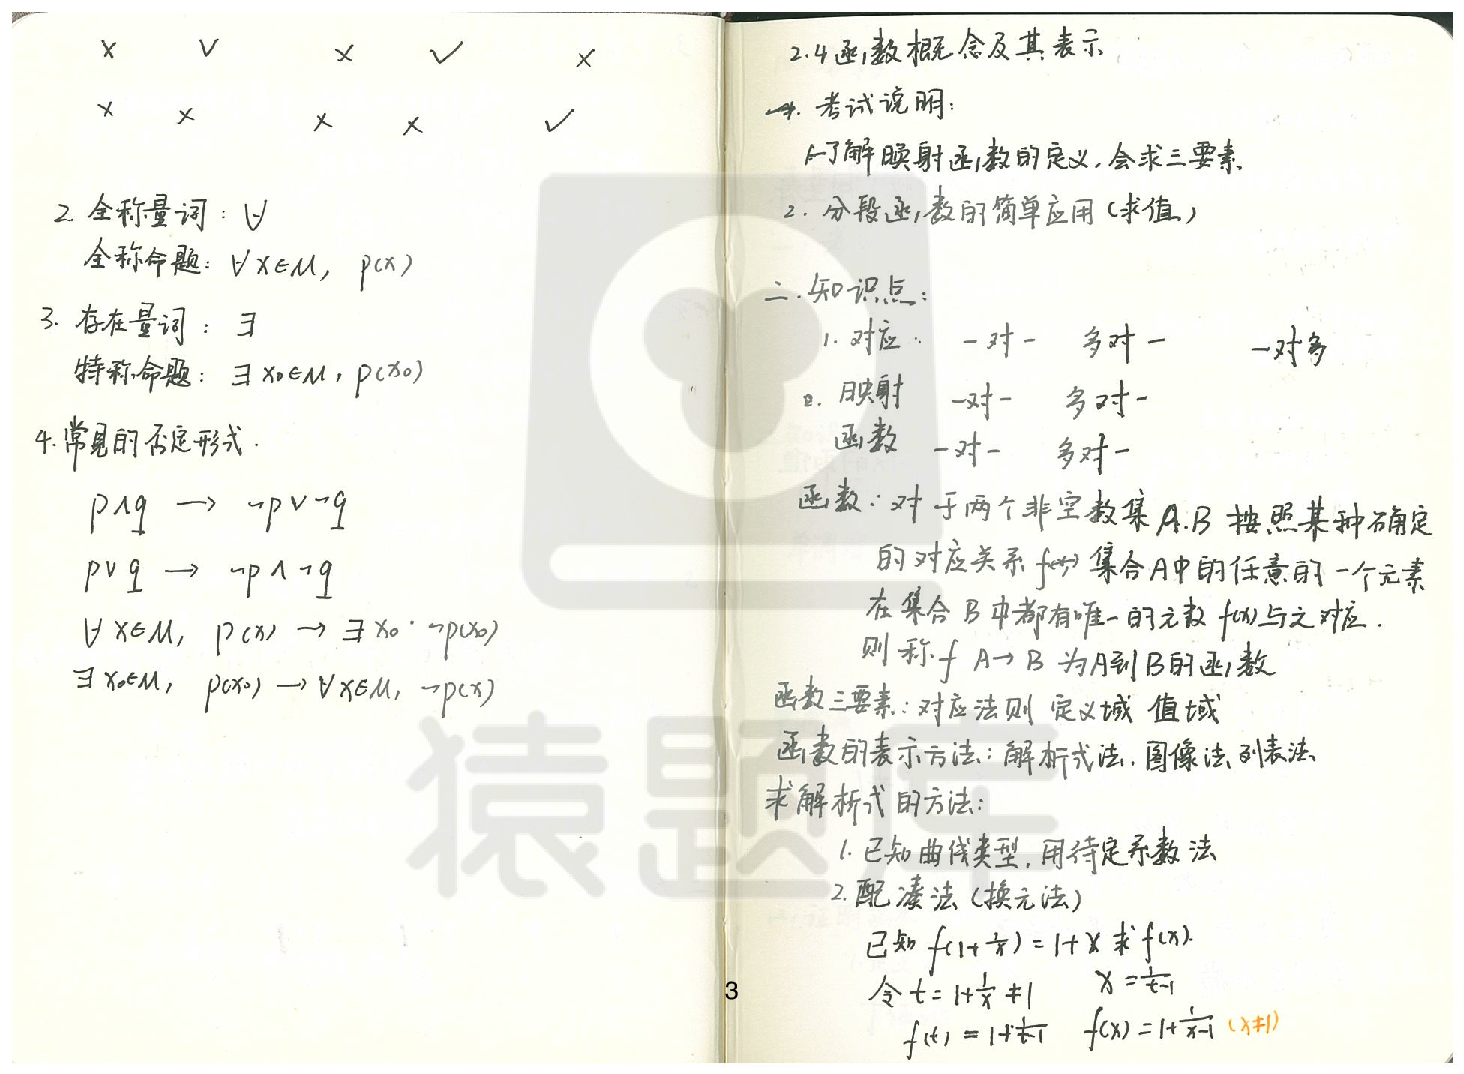 × ∨ × ✓ ×
× × × × ✓
2. 全称量词: ∀
全称命题: ∀x∈M, p(x)
3. 存在量词: ∃
特称命题: ∃x₀∈M, p(x₀)
4. 常见的否定形式.
p∧q → ¬p∨¬q
p∨q → ¬p∧¬q
∀x∈M, p(x) → ∃x₀. ¬p(x₀)
∃x₀∈M, p(x₀) → ∀x∈M, ¬p(x)
2.4函数概念及其表示
一. 考试说明:
1.了解映射函数的定义.会求三要素.
2. 分段函数的简单应用(求值)
二. 知识点:
1. 对应. 一对一 多对一 一对多
2. 映射 一对一 多对一
函数 一对一 多对一
函数: 对于两个非空数集A.B 按照某种确定
的对应关系 f(x) 集合A中的任意的一个元素
在集合B中都有唯一的元数f(x)与之对应.
则称f A→B 为A到B的函数
函数三要素: 对应法则 定义域 值域
函数的表示方法: 解析式法.图像法.列表法.
求解析式的方法:
1. 已知曲线类型, 用待定系数法
2. 配凑法(换元法)
已知 f(1+1/x)=1+x 求f(x).
令 t=1+1/x≠1 x=1/(t-1)
f(t)=1+1/(t-1) f(x)=1+1/(x-1) (x≠1)
3
猿题库